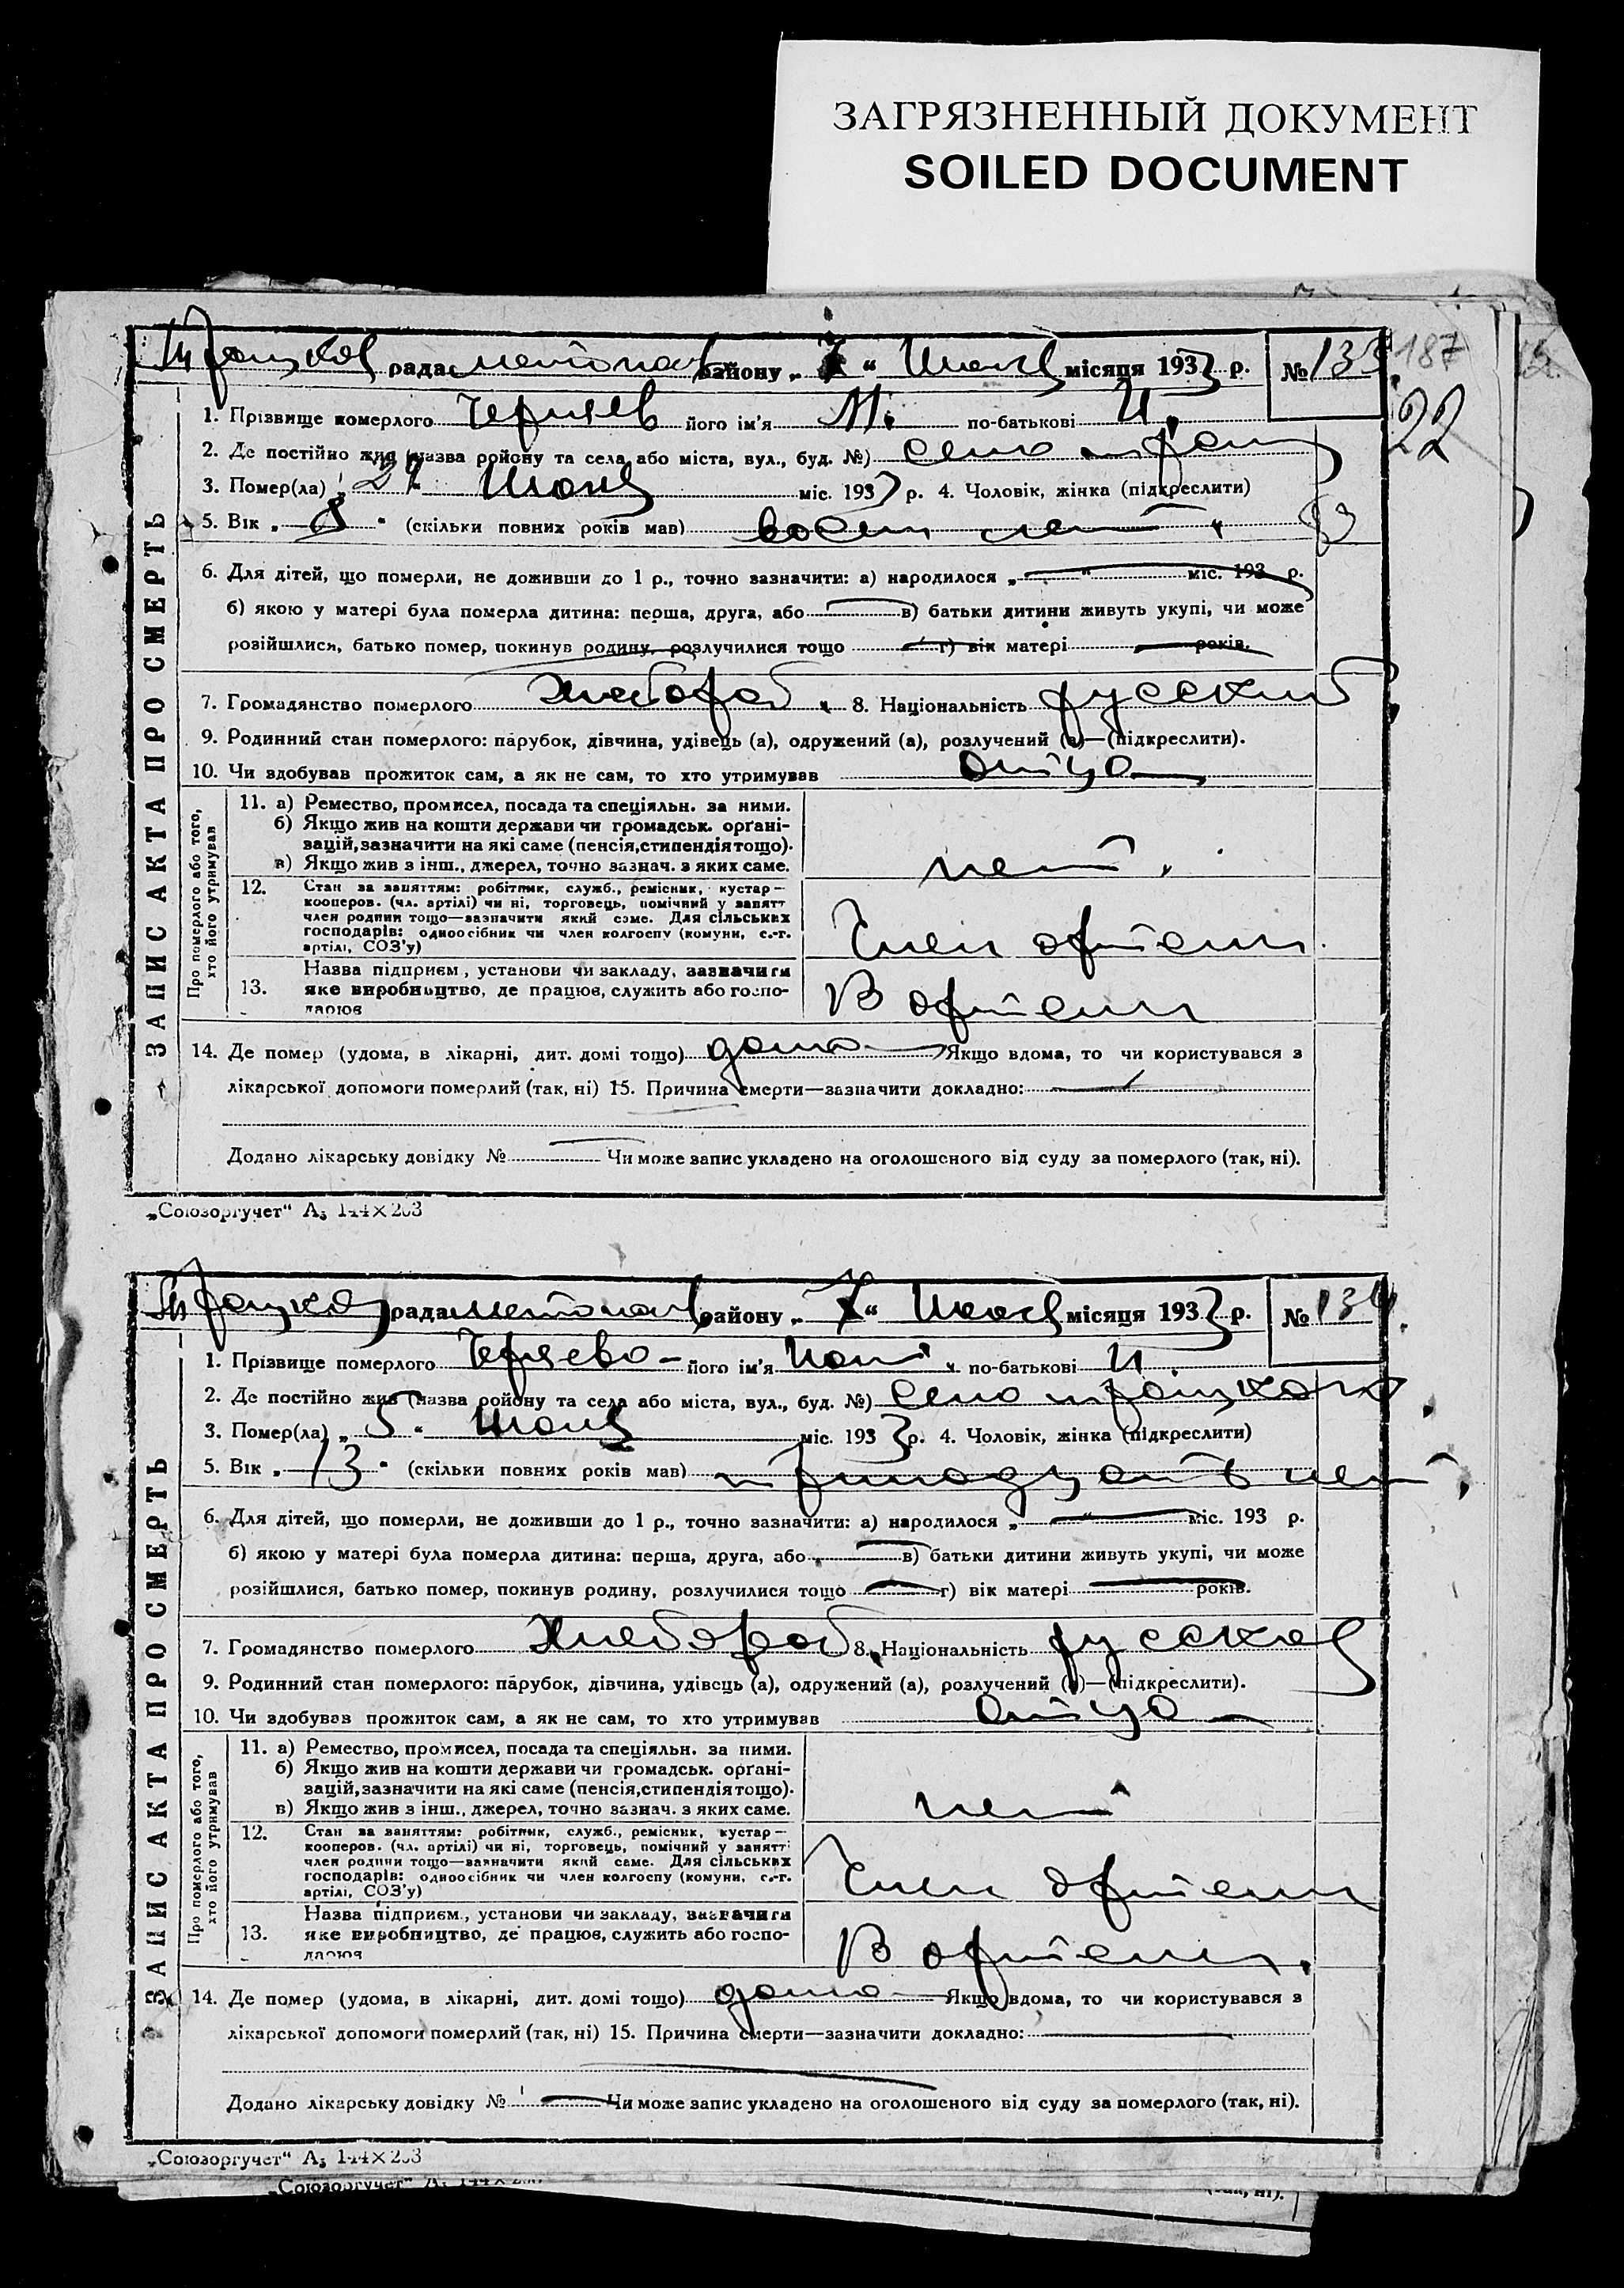 ЗАГРЯЗНЕННЫЙ ДОКУМЕНТ
SOILED DOCUMENT
187
22
рада району „ 7 “ місяця 1933 р. № 133
1. Прізвище померлого Черняев його ім'я М. по-батькові И.
2. Де постійно жив (назва району та села або міста, вул., буд. №) село
3. Помер(ла) „ “ Июня міс. 1933 р. 4. Чоловік, жінка (підкреслити)
5. Вік „ 8 “ (скільки повних років мав) восем лет
6. Для дітей, що померли, не доживши до 1 р., точно зазначити: а) народилося „ “ міс. 193 р.
б) якою у матері була померла дитина: перша, друга, або в) батьки дитини живуть укупі, чи може
розійшлися, батько помер, покинув родину, розлучилися тощо г) вік матері років.
7. Громадянство померлого хлебороб 8. Національність русский
9. Родинний стан померлого: парубок, дівчина, удівець (а), одружений (а), розлучений (а)—(підкреслити).
10. Чи здобував прожиток сам, а як не сам, то хто утримував отец
Про померлого або того, хто його утримував
11. а) Ремество, промисел, посада та спеціяльн. за ними.
б) Якщо жив на кошти держави чи громадськ. орґані-
зацій, зазначити на які саме (пенсія, стипендія тощо).
в) Якщо жив з інш., джерел, точно зазнач. з яких саме.
нет.
12. Стан за заняттям: робітник, служб., ремісник, кустар—
кооперов. (чл. артілі) чи ні, торговець, помічний у занятт
член родини тощо—зазначити який саме. Для сільських
господарів: одноосібник чи член колгоспу (комуни, с.-г.
артілі, СОЗ'у)
Член артели
13. Назва підприєм., установи чи закладу, зазначити
яке виробництво, де працює, служить або госпо-
дарює
В артели
14. Де помер (удома, в лікарні, дит. домі тощо) дома Якщо вдома, то чи користувався з
лікарської допомоги померлий (так, ні) 15. Причина смерти—зазначити докладно:
Додано лікарську довідку № Чи може запис укладено на оголошеного від суду за померлого (так, ні).
ЗАПИС АКТА ПРО СМЕРТЬ
„Союзоргучет“ А₅ 144×203
рада району „ 7 “ місяця 1933 р. № 134.
1. Прізвище померлого Черняева його ім'я по-батькові И.
2. Де постійно жив (назва району та села або міста, вул., буд. №) село троицкое
3. Помер(ла) „ 5 “ Июня міс. 1933 р. 4. Чоловік, жінка (підкреслити)
5. Вік „ 13 “ (скільки повних років мав) тринадцать лет,
6. Для дітей, що померли, не доживши до 1 р., точно зазначити: а) народилося „ “ міс. 193 р.
б) якою у матері була померла дитина: перша, друга, або в) батьки дитини живуть укупі, чи може
розійшлися, батько помер, покинув родину, розлучилися тощо г) вік матері років.
7. Громадянство померлого хлебороб 8. Національність русская
9. Родинний стан померлого: парубок, дівчина, удівець (а), одружений (а), розлучений (а)—(підкреслити).
10. Чи здобував прожиток сам, а як не сам, то хто утримував отец
Про померлого або того, хто його утримував
11. а) Ремество, промисел, посада та спеціяльн. за ними.
б) Якщо жив на кошти держави чи громадськ. орґані-
зацій, зазначити на які саме (пенсія, стипендія тощо).
в) Якщо жив з інш., джерел, точно зазнач. з яких саме.
нет
12. Стан за заняттям: робітник, служб., ремісник, кустар—
кооперов. (чл. артілі) чи ні, торговець, помічний у занятт
член родини тощо—зазначити який саме. Для сільських
господарів: одноосібник чи член колгоспу (комуни, с.-г.
артілі, СОЗ'у)
Член артели
13. Назва підприєм., установи чи закладу, зазначити
яке виробництво, де працює, служить або госпо-
дарює
В артели.
14. Де помер (удома, в лікарні, дит. домі тощо) дома Якщо вдома, то чи користувався з
лікарської допомоги померлий (так, ні) 15. Причина смерти—зазначити докладно:
Додано лікарську довідку № Чи може запис укладено на оголошеного від суду за померлого (так, ні).
ЗАПИС АКТА ПРО СМЕРТЬ
„Союзоргучет“ А₅ 144×203
„Союзоргучет“
(так, ні).